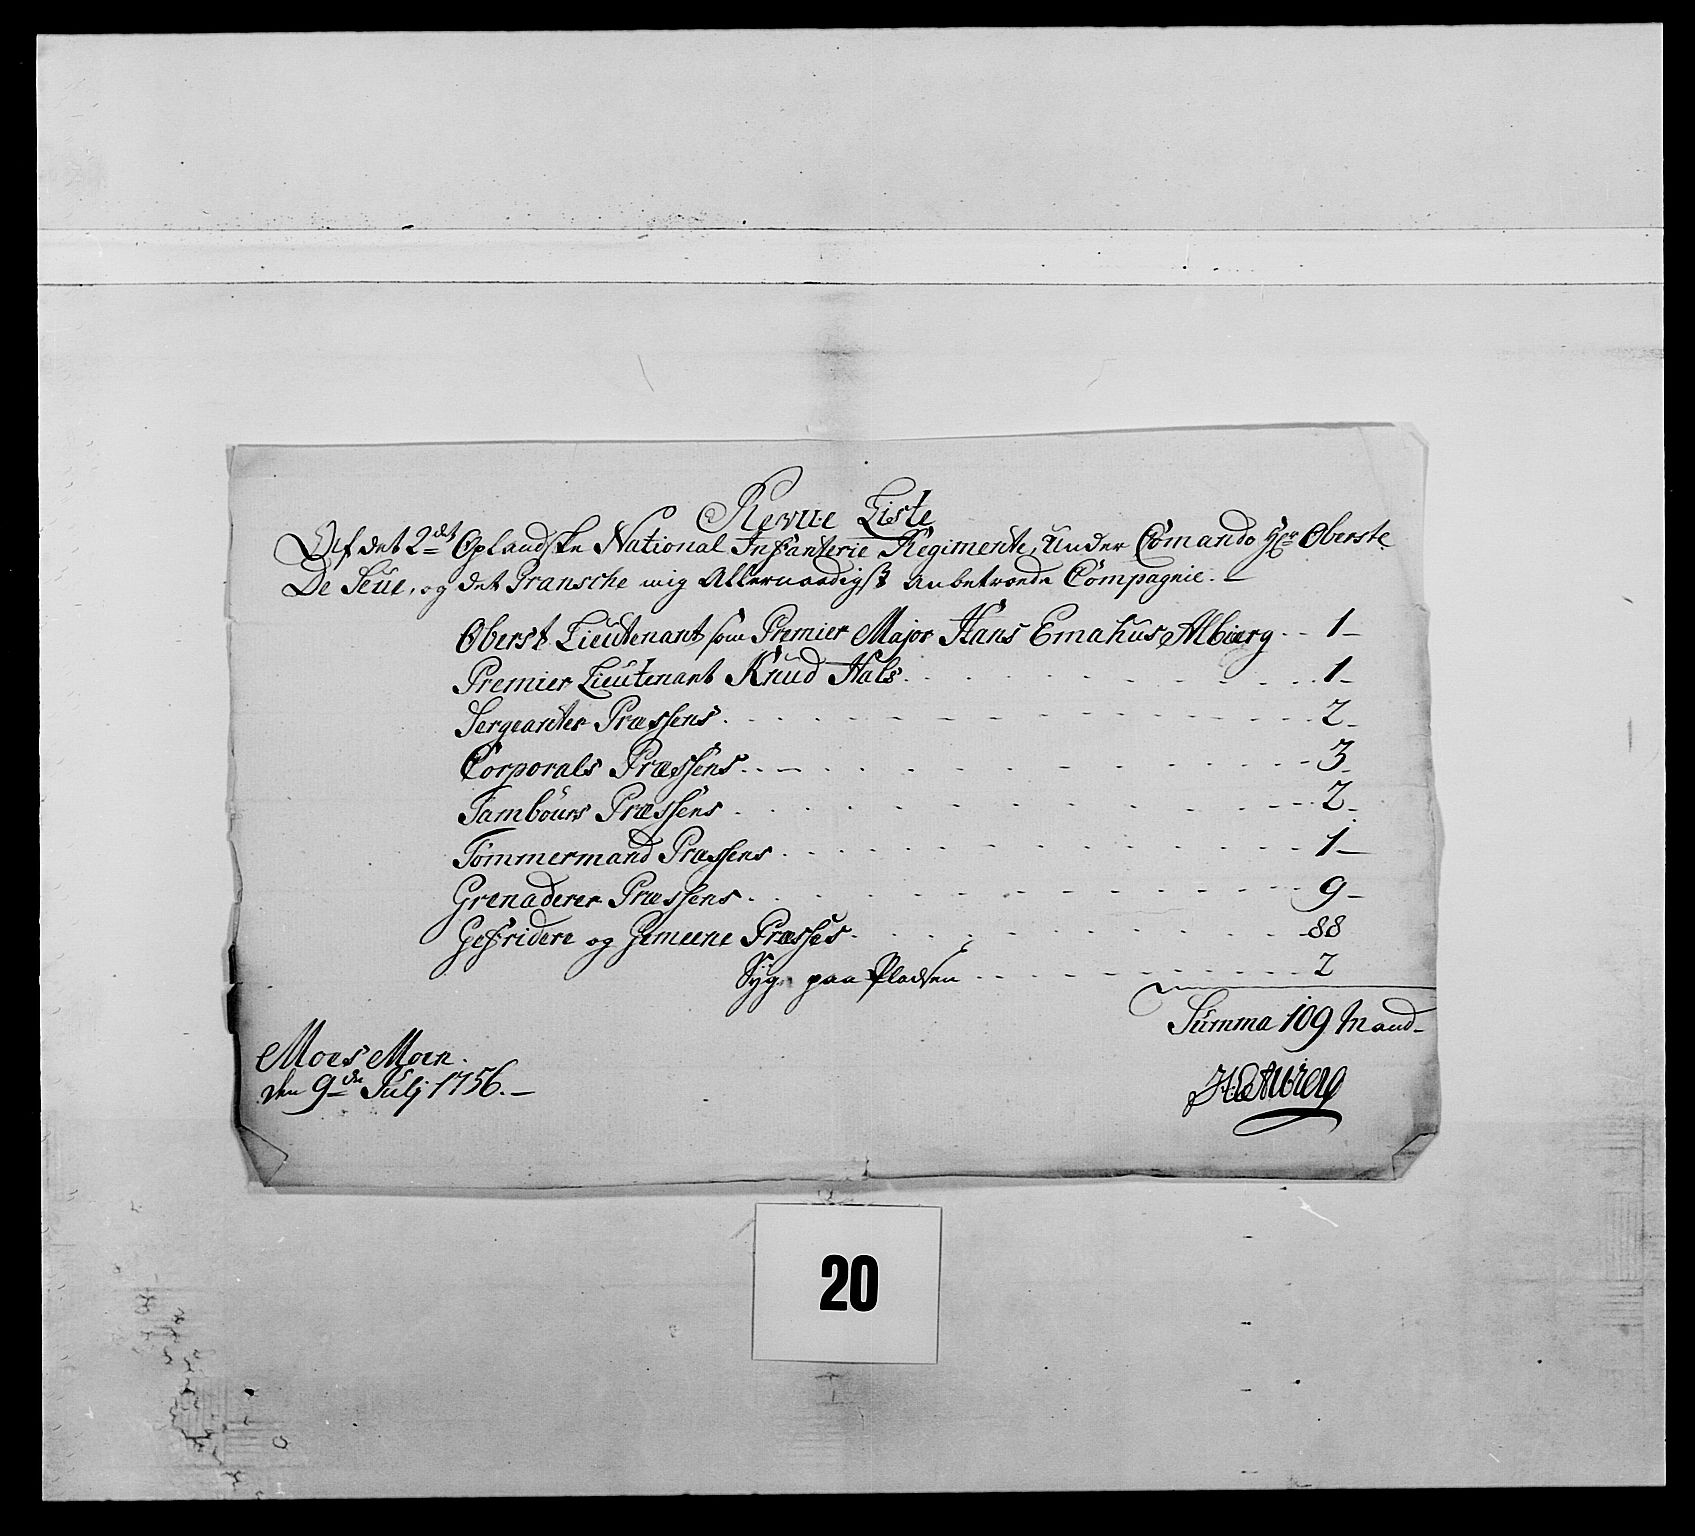 Revue Liste
Af det 2det Oplandske National Infanterie Regimente, Under Comando Hr Oberste
De Seue, og det Gransche mig Allernaadigst anbetroede Compagnie.
Oberst Lieutenant som Premier Major Hans Emahus Albierg 1
Premier Lieutenant Knud Hals 1
Sergeanter Præssens 2
Corporals Præssens 3
Tambours Præssens 2
Tømmermand Præssens 1
Grenaderer Præssens 9
Gefridere og Gemeene Præsses 88
Syge paa Pladsen 2
Summa 109 Mand
Moes Moen.
den 9de Julj 1756.
HEAlbierg
20